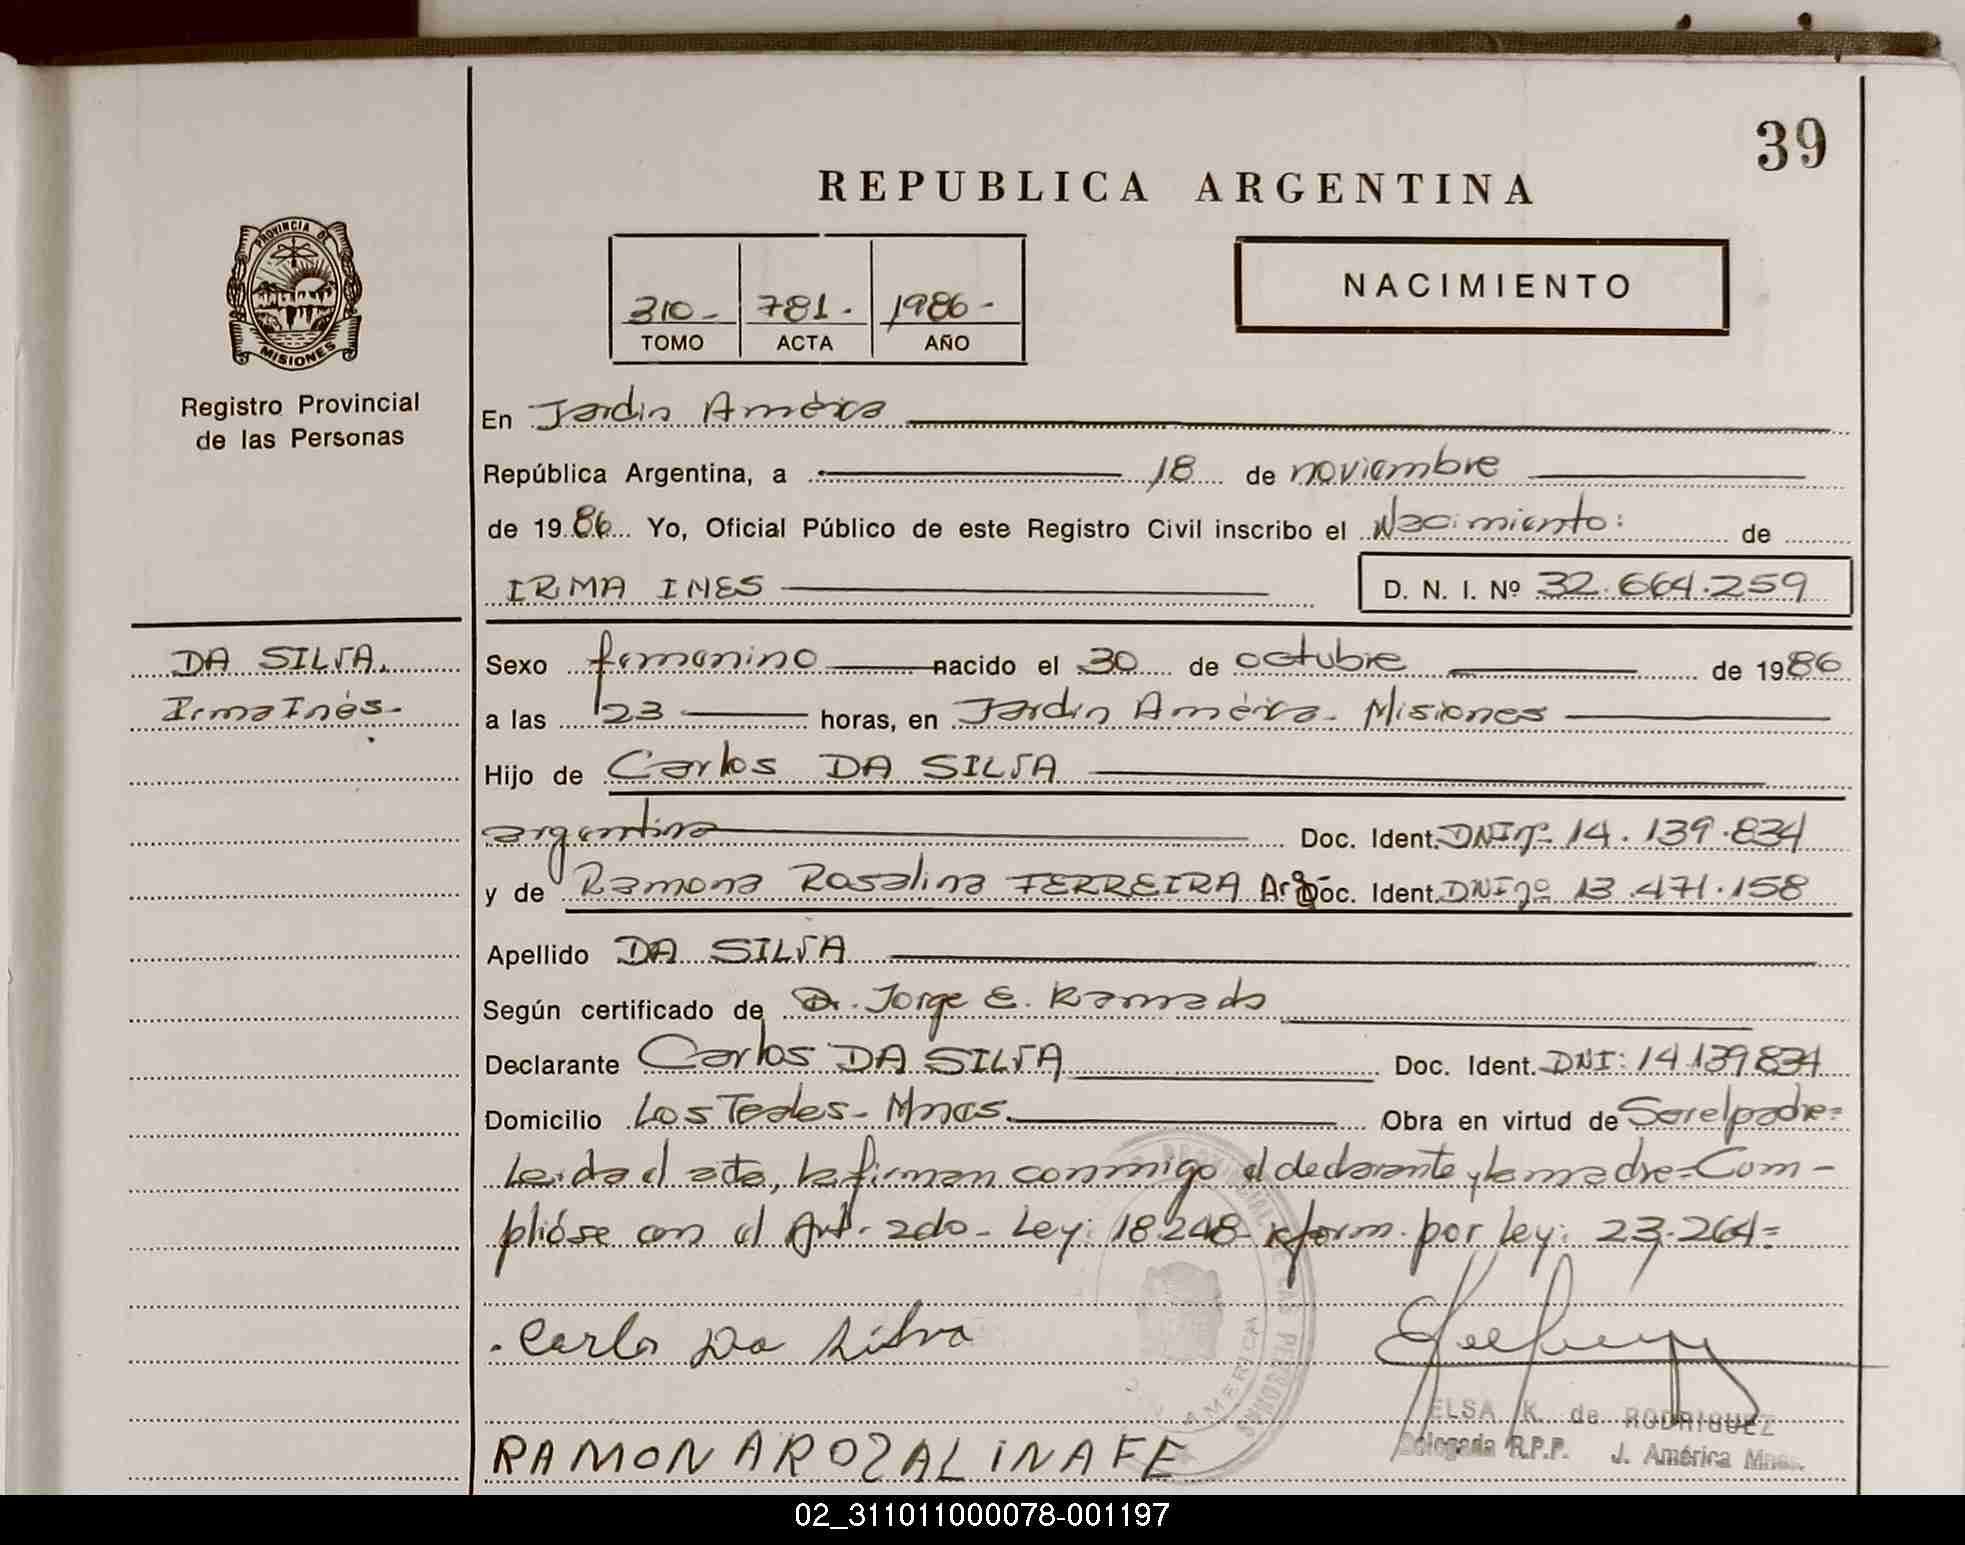 39
REPUBLICA ARGENTINA
PROVINCIA DE
MISIONES
310- 781- 1986-
TOMO ACTA AÑO
NACIMIENTO
Registro Provincial
de las Personas
En Jardin América
República Argentina, a 18 de noviembre
de 1986 Yo, Oficial Público de este Registro Civil inscribo el Nacimiento: de
IRMA INES D. N. I. Nº 32.664.259
DA SILVA.
Irma Inés-
Sexo femenino nacido el 30 de octubre de 1986
a las 23 horas, en Jardin América- Misiones
Hijo de Carlos DA SILVA
argentina Doc. Ident. DNI nº 14.139.834
y de Ramona Rosalina FERREIRA Arg Doc. Ident. DNI nº 13.471.158
Apellido DA SILVA
Según certificado de Dr. Jorge E.
Declarante Carlos DA SILVA Doc. Ident. DNI: 14.139.834
Domicilio Los Teales- Mnes. Obra en virtud de Ser el padre=
Leida el acta, la firman conmigo el declarante y la madre=Cum-
plióse con el Art. 2do- Ley: 18248- reform. por ley: 23.264=
. Carlo Da Silva
ELSA K. de RODRIGUEZ
Delegada R.P.P. J. América Mnes.
RAMONA ROZALINA FE
02_311011000078-001197